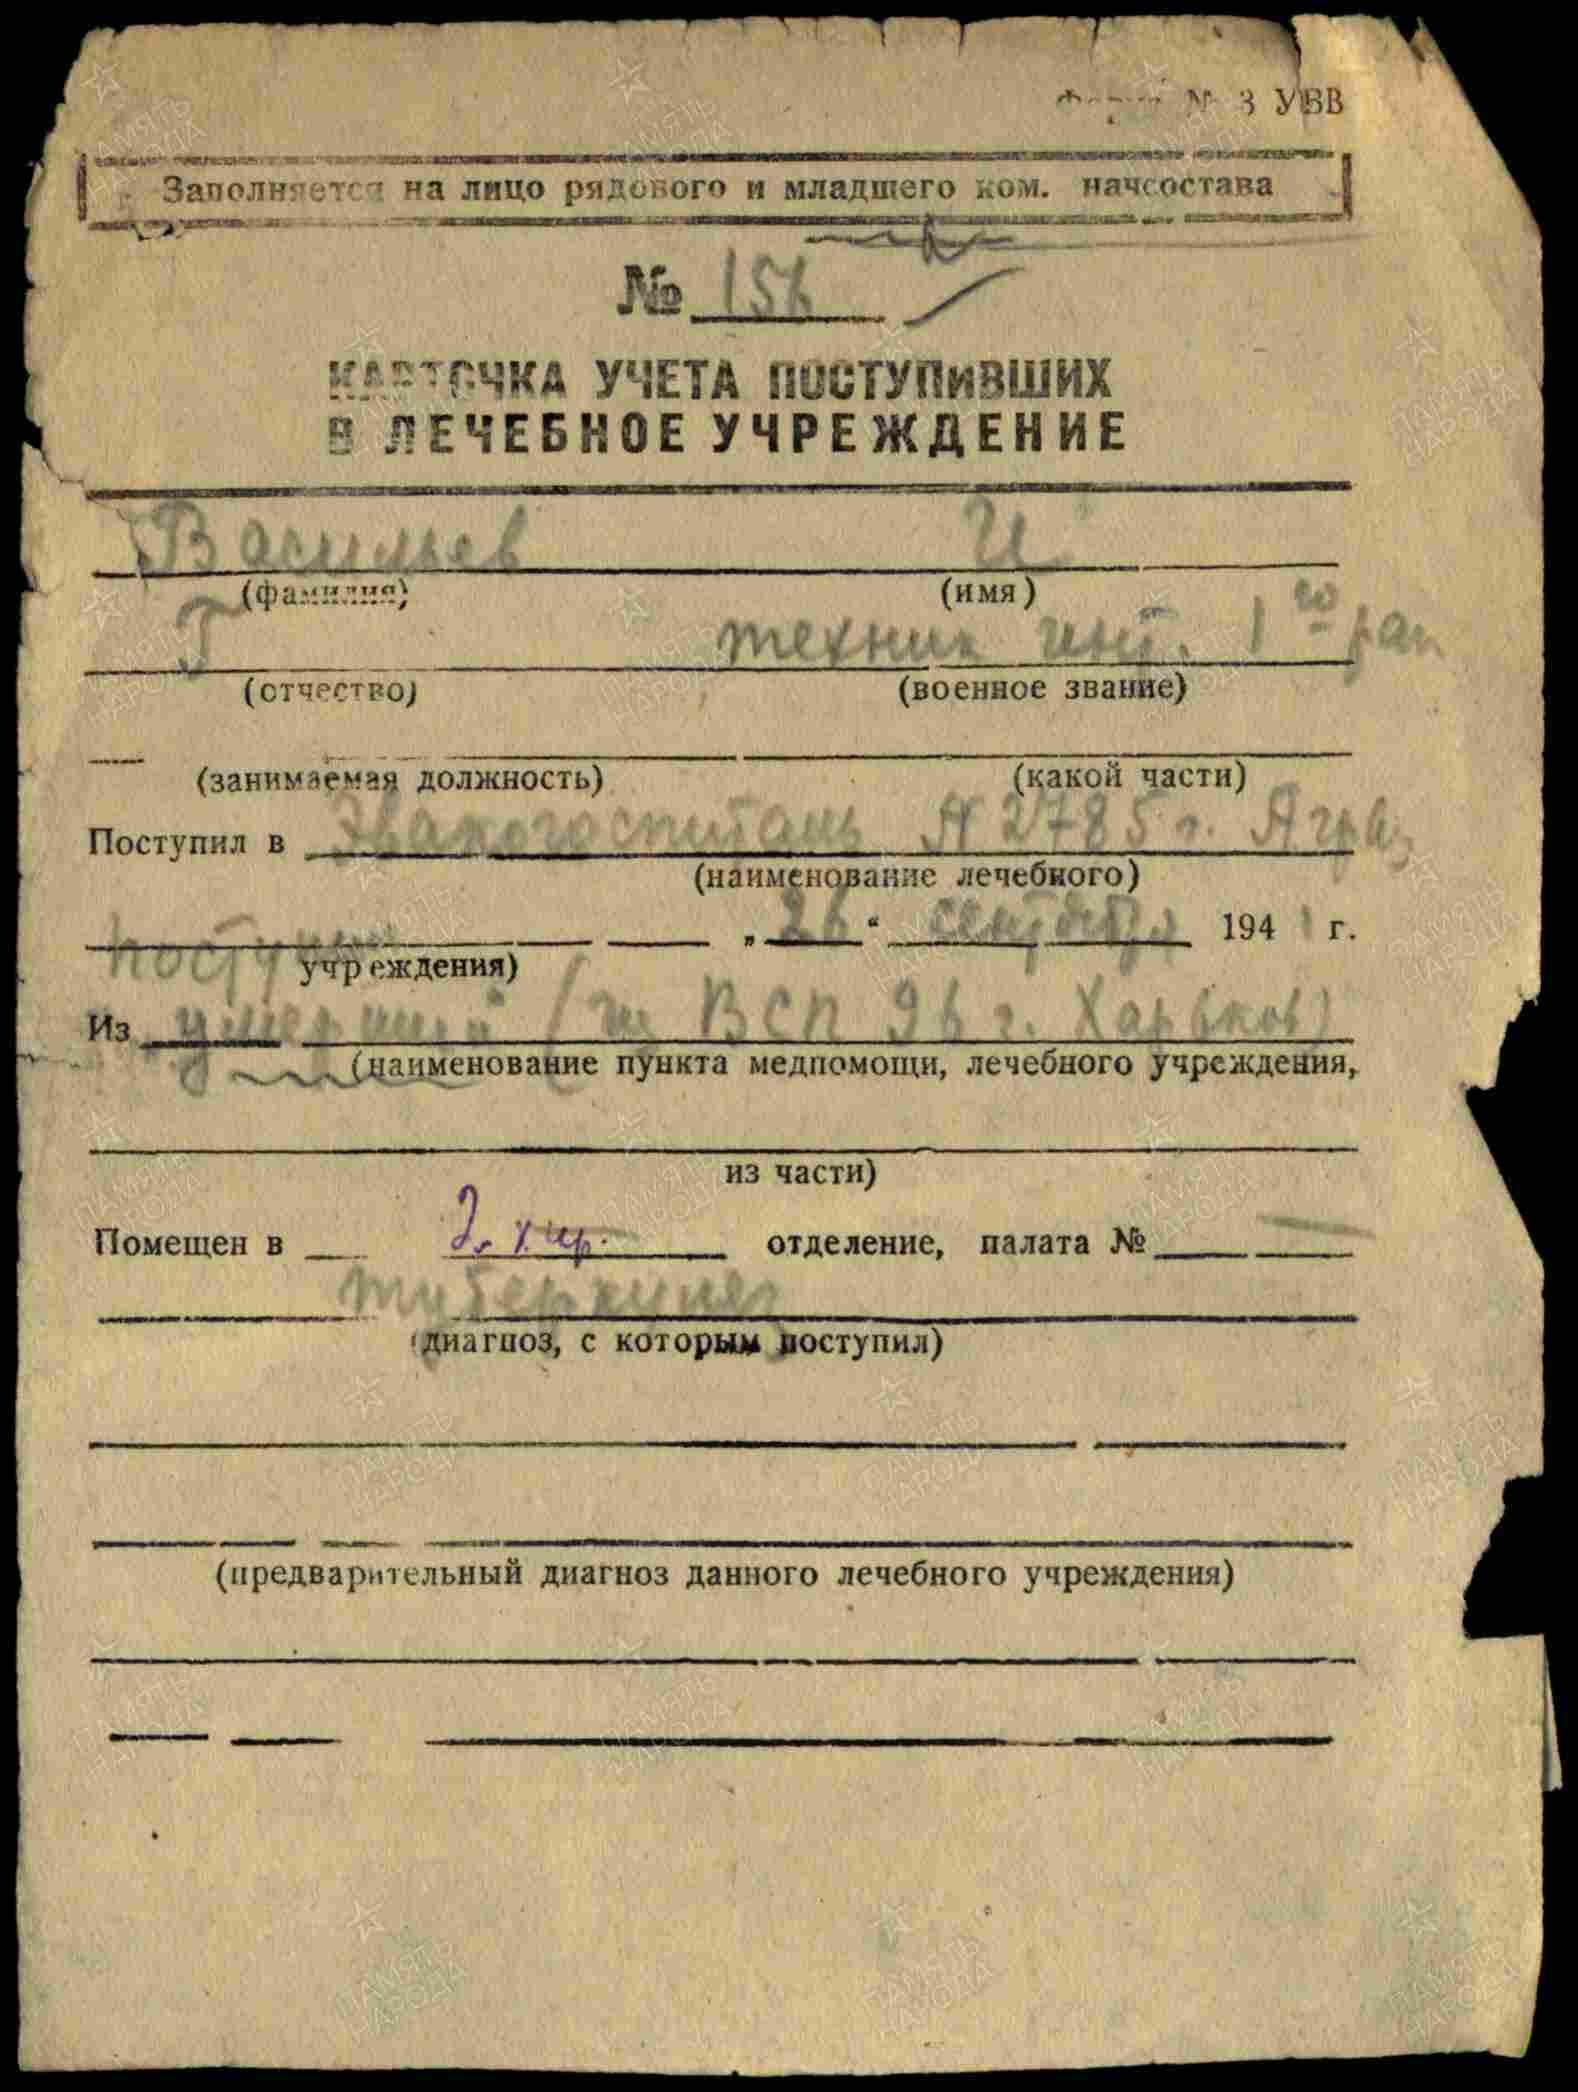 Форма № 3 УВВ
Заполняется на лицо рядового и младшего ком. начсостава
№ 156
КАРТОЧКА УЧЕТА ПОСТУПИВШИХ
В ЛЕЧЕБНОЕ УЧРЕЖДЕНИЕ
Васильев И
(фамилия) (имя)
Г техник инт. 1го ран
(отчество) (военное звание)
(занимаемая должность) (какой части)
Поступил в Эвакогоспиталь № 2785 г.
(наименование лечебного)
поступил „26“ сентября 1941 г.
учреждения)
Из умерший (из ВСП 96 г. Харьков)
(наименование пункта медпомощи, лечебного учреждения,
из части)
Помещен в 2. хир. отделение, палата №
туберкулез
(диагноз, с которым поступил)
(предварительный диагноз данного лечебного учреждения)